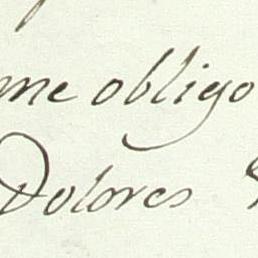 me obligo
Dolores